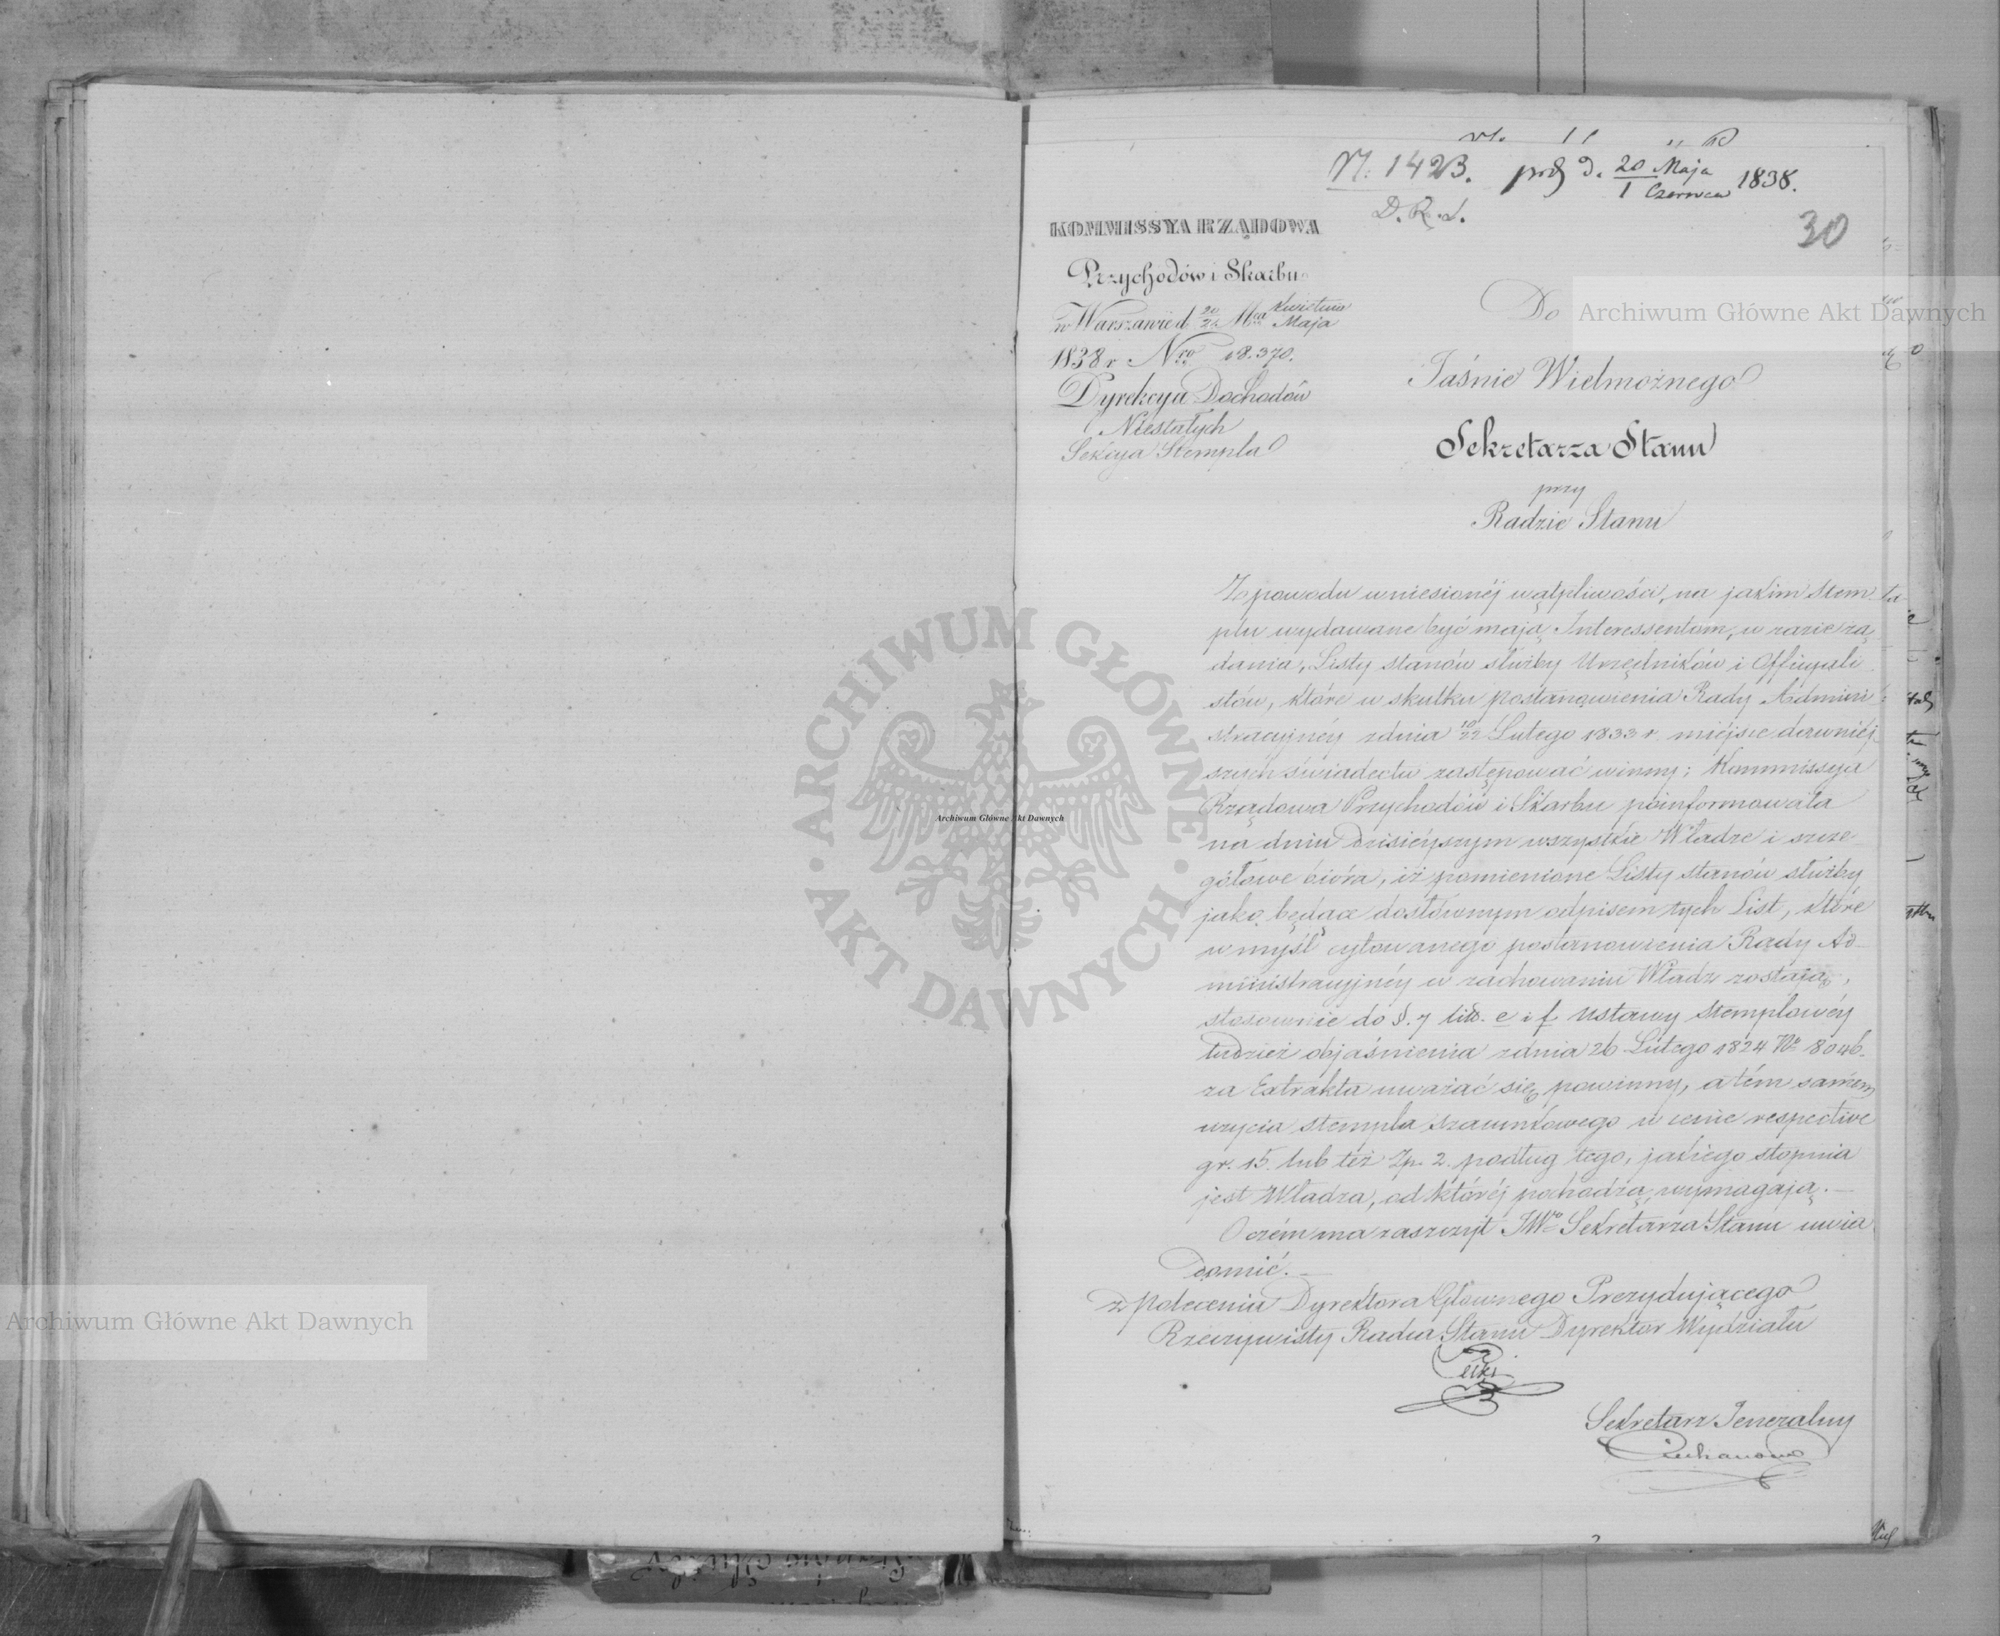 N. 1423. d. 20 Maja
1 Czerwca 1838.
D. R. S.
30
KOMMISSYA RZĄDOWA
Przychodów i Skarbu
w Warszawie d. Mca Kwietnia
Maja
1838 r. Nro 18.370.
Dyrekcya Dochodów
Niestałych
Sekcya Stempla
Do
Jaśnie Wielmożnego
Sekretarza Stanu
przy
Radzie Stanu
Z powodu wniesionéj wątpliwości, na jakim stem
plu wydawane być mają Interessentom, w razie żą
dania, Listy stanów służby Urzędników i Officyali
stów, które w skutku postanowienia Rady Admini
stracyjnéy z dnia 10/22 Lutego 1833 r. miéjsce dawniéj
szych świadectw zastępować winny; Kommissya
Rządowa Przychodów i Skarbu poinformowała
na dniu dzisiéyszym wszystkie Władze i szcze-
gółowe bióra, iż pomienione Listy stanów służby
jako będące dosłównym odpisem tych List, które
w myśl cytowanego postanowienia Rady Ad-
ministracyjnéy w zachowaniu Władz zostają,
stosownie do §. 7 litt. e i f Ustawy stemplowéy
tudzież objaśnienia z dnia 26 Lutego 1824 No 8046.
za Extrakta uważać się powinny, a tém samém
użycia stempla szacunkowego w cenie respective
gr. 15. lub téż Zp. 2. podług tego, jakiego stopnia
jest Władza, od któréj pochodzą, wymagają.—
O czém ma zaszczyt JWo Sekretarza Stanu uwia
domić.—
z Polecenia Dyrektora Głównego Prezydującego
Rzeczywisty Radca Stanu Dyrektor Wydziału
Sekretarz Jeneralny
Archiwum Główne Akt Dawnych
Archiwum Główne Akt Dawnych
Archiwum Główne Akt Dawnych
ARCHIWUM GŁÓWNE AKT DAWNYCH